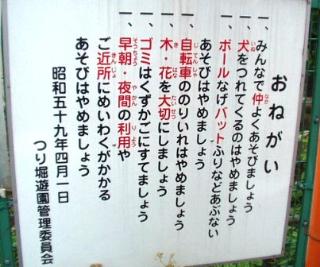 おねがい
一、みんなで仲よくあそびましょう
一、犬をつれてくるのはやめましょう
一、ボールなげバットふりなどあぶない
あそびはやめましょう
一、自転車ののりいれはやめましょう
一、木・花を大切にしましょう
一、ゴミはくずかごにすてましょう
一、早朝・夜間の利用や
ご近所にめいわくがかかる
あそびはやめましょう
昭和五十九年四月一日
つり堀遊園管理委員会